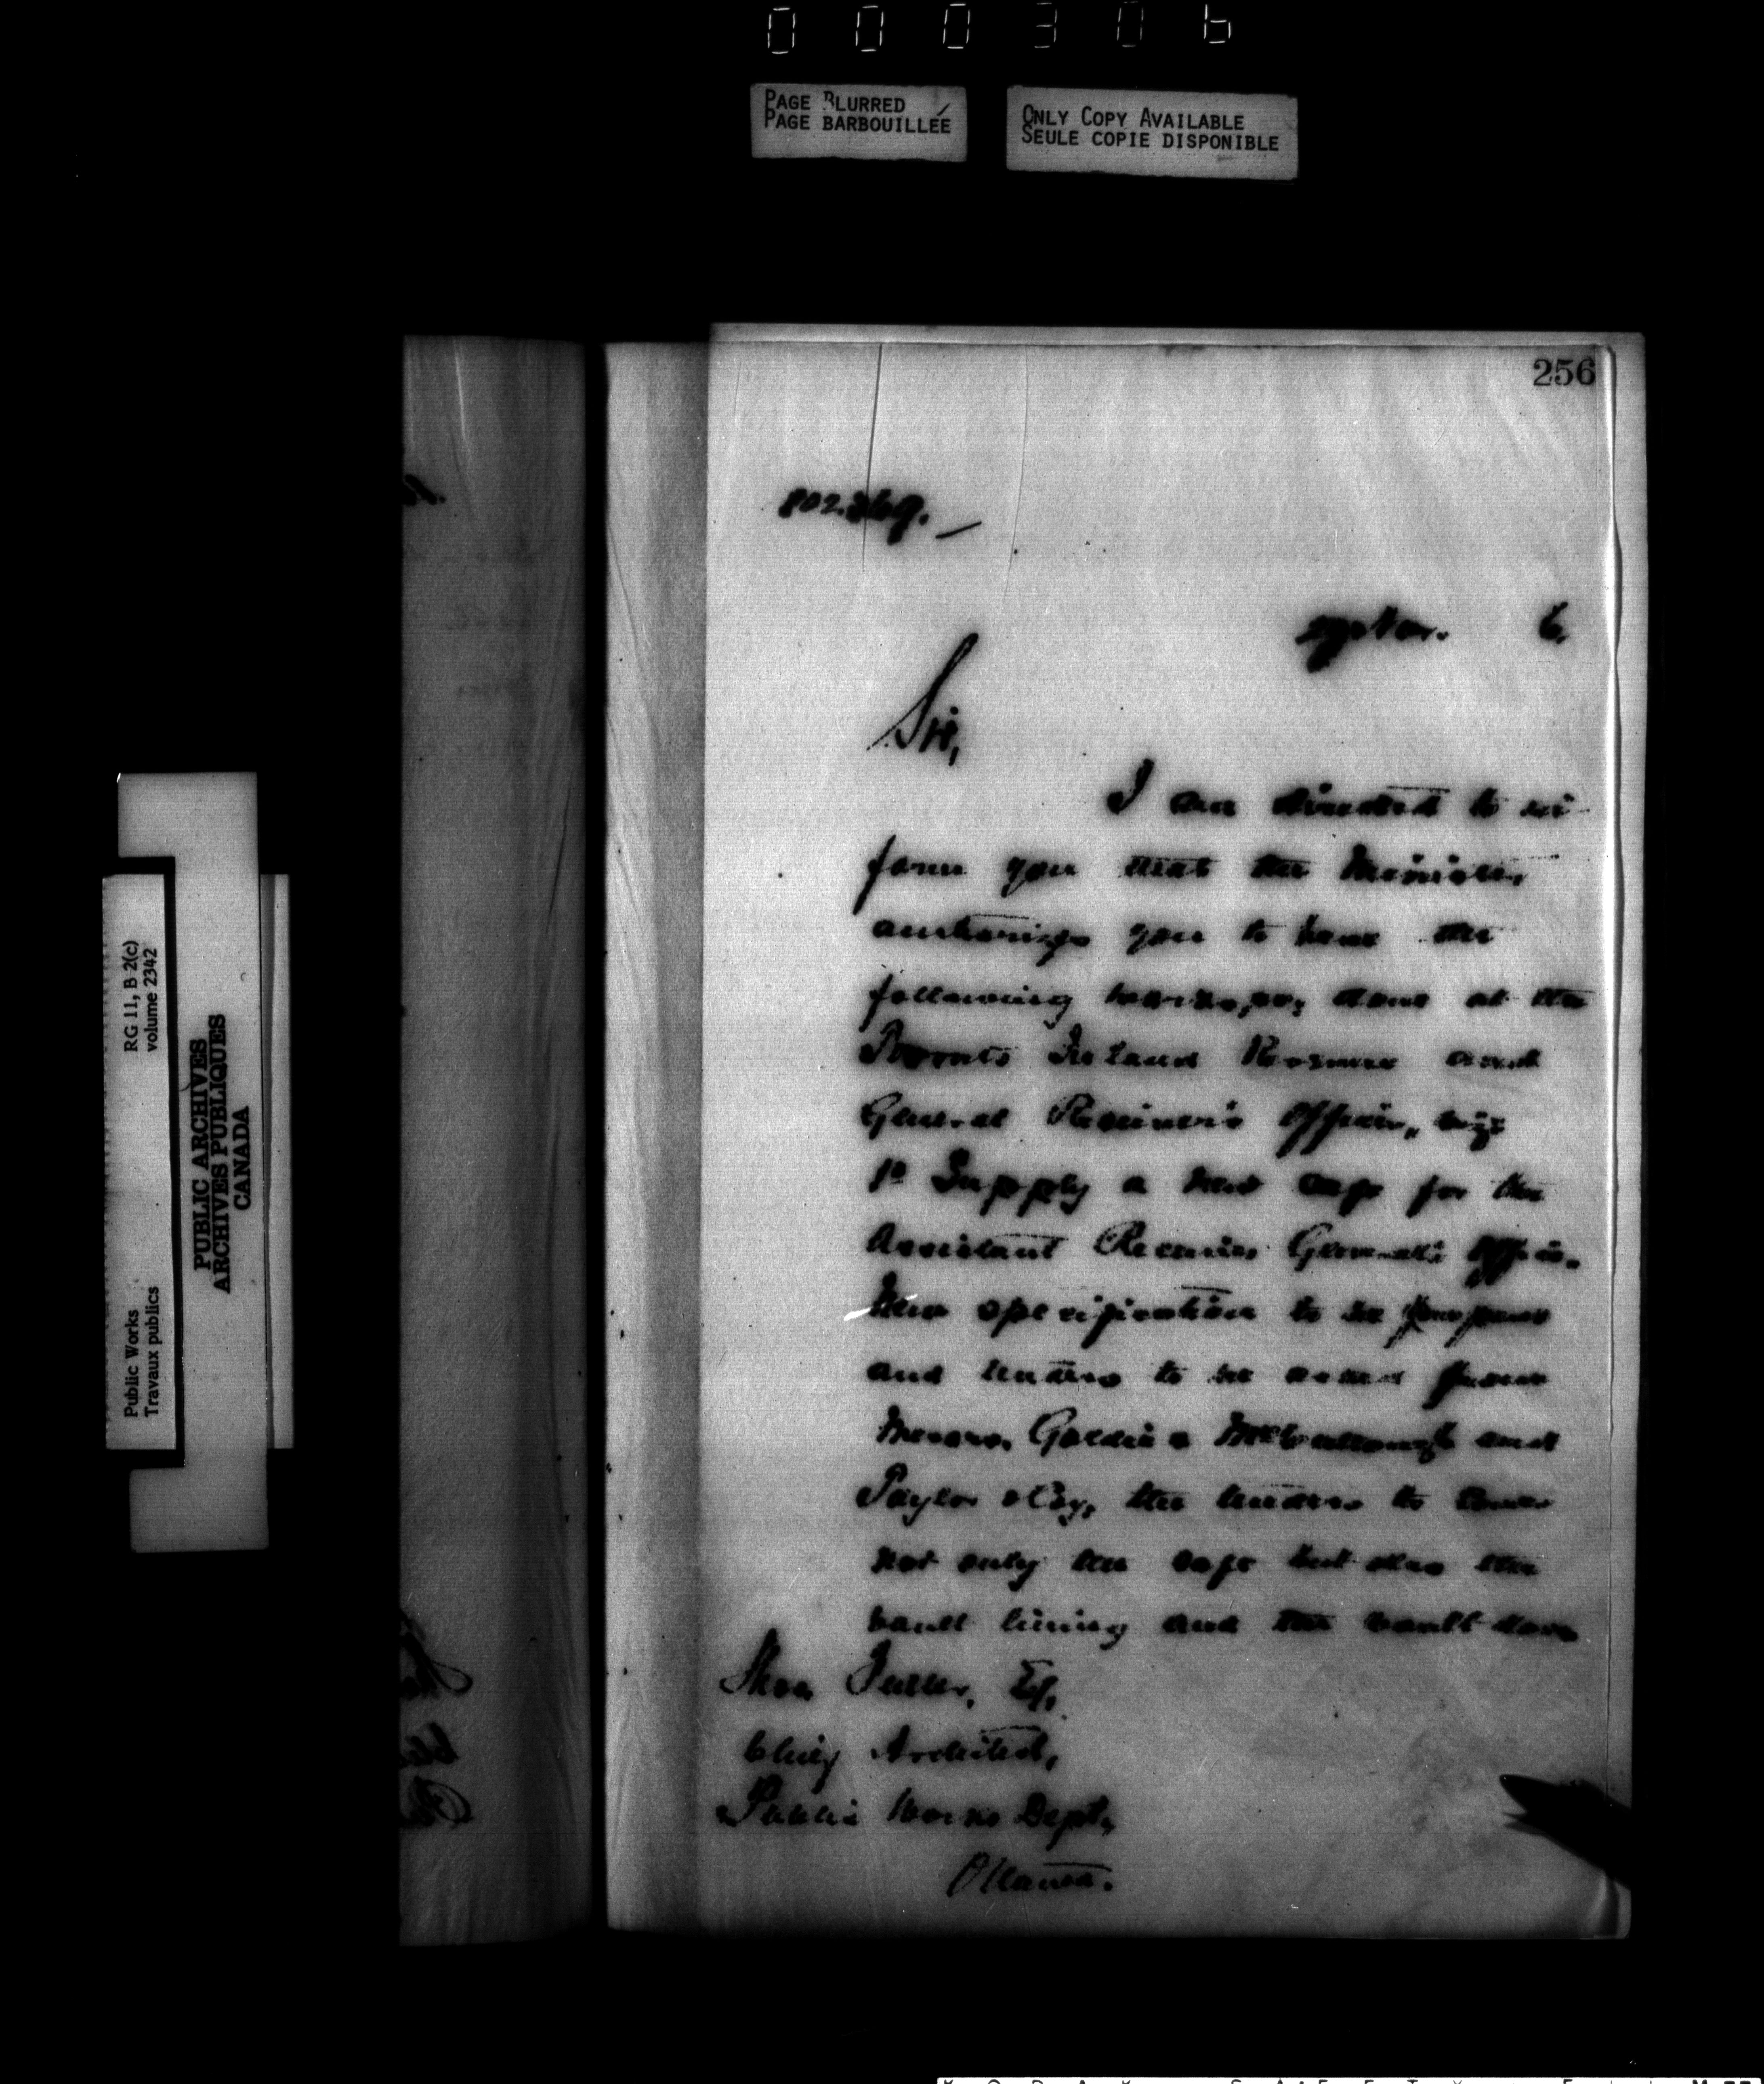 000306
PAGE BLURRED
PAGE BARBOUILLÉE
ONLY COPY AVAILABLE
SEULE COPIE DISPONIBLE
256
6.
Sir,
I am directed to in-
form you that the Minister
authorizes you to have the
following works, done at the
Toronto Inland Revenue and
General Receiver's Offices, viz:
1o Supply a new safe for the
Assistant Receiver General's Office.
New specification to be prepared
and tenders to be asked from
Messrs. Goldie & McCullough and
Taylor & Coy, the tenders to cover
not only the safe but also the
vault lining and the vault door
Thos. Fuller, Esq,
Chief Architect,
Public Works Dept,
Ottawa.
Public Works
Travaux publics
RG 11, B 2(c)
volume 2342
PUBLIC ARCHIVES
ARCHIVES PUBLIQUES
CANADA